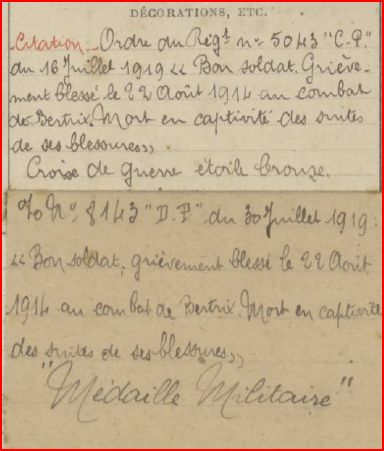 DÉCORATIONS, ETC.
Citation:- Ordre du Régt n° 5043 "C.P."
du 16 Juillet 1919 << Bon soldat. Griève-
ment blessé le 22 Août 1914 au combat
de Bertrix. Mort en captivité des suites
de ses blessures,,
Croix de guerre étoile bronze.
N° 8143 "D.P" du 30 Juillet 1919:
<< Bon soldat, grièvement blessé le 22 Août
1914 au combat de Bertrix. Mort en captivité
des suites de ses blessures,,
"Médaille Militaire"